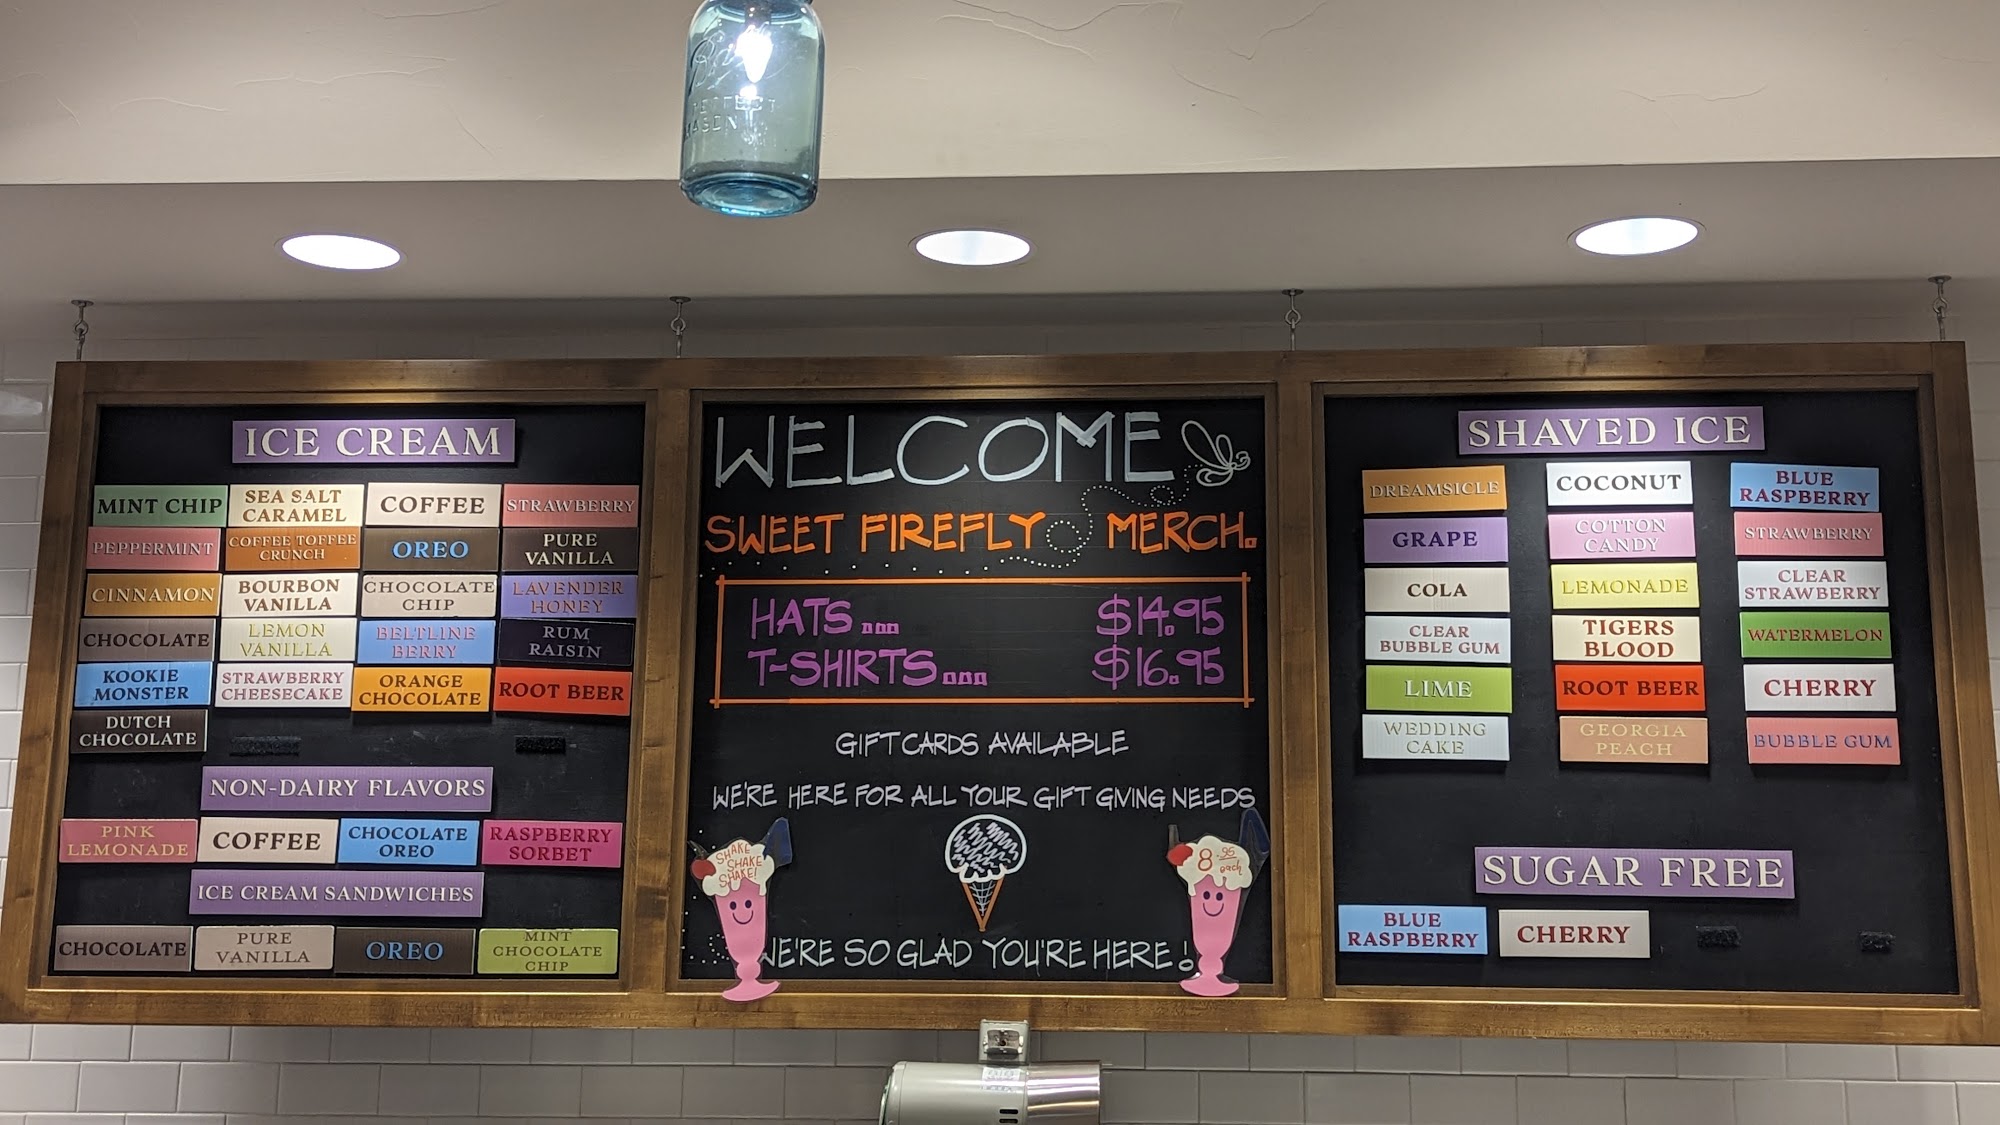 Ball
PERFECT
MASON
ICE CREAM
MINT CHIP
SEA SALT
CARAMEL
COFFEE
STRAWBERRY
PEPPERMINT
COFFEE TOFFEE
CRUNCH
OREO
PURE
VANILLA
CINNAMON
BOURBON
VANILLA
CHOCOLATE
CHIP
LAVENDER
HONEY
CHOCOLATE
LEMON
VANILLA
BELTLINE
BERRY
RUM
RAISIN
KOOKIE
MONSTER
STRAWBERRY
CHEESECAKE
ORANGE
CHOCOLATE
ROOT BEER
DUTCH
CHOCOLATE
NON-DAIRY FLAVORS
PINK
LEMONADE
COFFEE
CHOCOLATE
OREO
RASPBERRY
SORBET
ICE CREAM SANDWICHES
CHOCOLATE
PURE
VANILLA
OREO
MINT
CHOCOLATE
CHIP
WELCOME
SWEET FIREFLY MERCH.
HATS... $14.95
T-SHIRTS... $16.95
GIFT CARDS AVAILABLE
WE'RE HERE FOR ALL YOUR GIFT GIVING NEEDS
SHAKE
SHAKE
SHAKE!
8.95
each
WE'RE SO GLAD YOU'RE HERE!
SHAVED ICE
DREAMSICLE
COCONUT
BLUE
RASPBERRY
GRAPE
COTTON
CANDY
STRAWBERRY
COLA
LEMONADE
CLEAR
STRAWBERRY
CLEAR
BUBBLE GUM
TIGERS
BLOOD
WATERMELON
LIME
ROOT BEER
CHERRY
WEDDING
CAKE
GEORGIA
PEACH
BUBBLE GUM
SUGAR FREE
BLUE
RASPBERRY
CHERRY